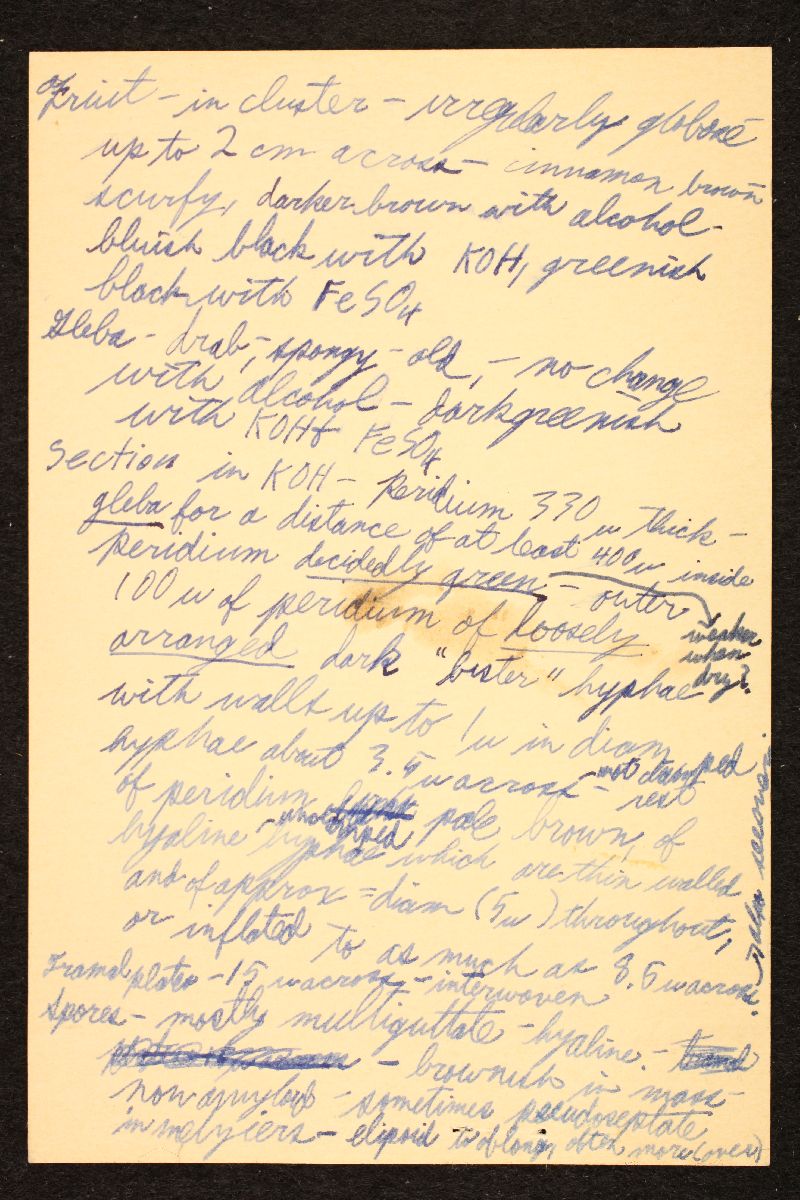 Fruit - in cluster - irregularly globose
up to 2 cm across - cinnamon brown
scurfy, darker brown with alcohol -
bluish black with KOH, greenish
black with FeSO4
Gleba - drab, spongy - old, - no change
with alcohol - dark greenish
with KOH & FeSO4
Section in KOH - Peridium 330 u thick -
gleba for a distance of at least 400 u inside
peridium decidedly green - outer
weaker
when
dry?
100 u of peridium of loosely
arranged dark "bister" hyphae
with walls up to 1 u in diam
hyphae about 3.5 u across - not clamped
rest
of peridium pale brown, of
hyaline unclamped hyphae which are thin walled
and of approx = diam (5 u) throughout,
or inflated to as much as 8.5 u across.
Tramal plates - 15 u across - interwoven
Spores - mostly multiguttate - hyaline -
- brownish in mass -
non amyloid - sometimes pseudoseptate
in melzers - elipsoid to oblong, often more (over)